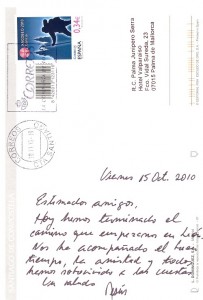 0,34€
ESPAÑA
CORREOS
R.C. Palma Junípero Serra
Hotel Valparaíso
Fco. Vidal Sureda, 23
07015 Palma de Mallorca
CORREOS
Viernes 15 Oct. 2010
Estimados amigos,
Hoy hemos terminado el
camino que empezamos en León.
Nos ha acompañado el buen
tiempo, la amistad y todos
hemos sobrevivido a las cuestas
Un saludo
Jesús